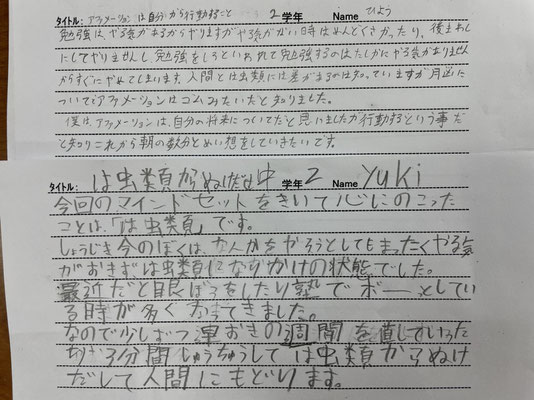 タイトル: アファメーションは自分から行動すること 2 学年 Name ひよう
勉強はやる気があるからやりますがやる気がない時はめんどくさかったり、後まわし
にしてやりませんし勉強をしろといわれて勉強するのはたしかにやる気がありません
からすぐにやめてしまいます。人間とは虫類には差があるのは知っていますが
ついてどアファメーションはコムみたいだと知りました。
僕は、アファメーションは、自分の将来についてだと思いましたが行動するという事だ
と知りこれから朝の数分とめい想をしていきたいです。
タイトル: は虫類からぬけだし中 学年 2 Name yuki
今回のマインドセットをきいて心にのこった
ことは、「は虫類」です。
しょうじき今のぼくは、なんかをやろうとしてもまったくやる気
がおきずは虫類になりかけの状態でした。
最近だと目良ぼうをしたり塾でボーとしてい
る時が多くなってきました。
なので少しずつ運おきの週間を直していった
り、3分間しゅうちゅうしては虫類からぬけ
だして人間にもどります。